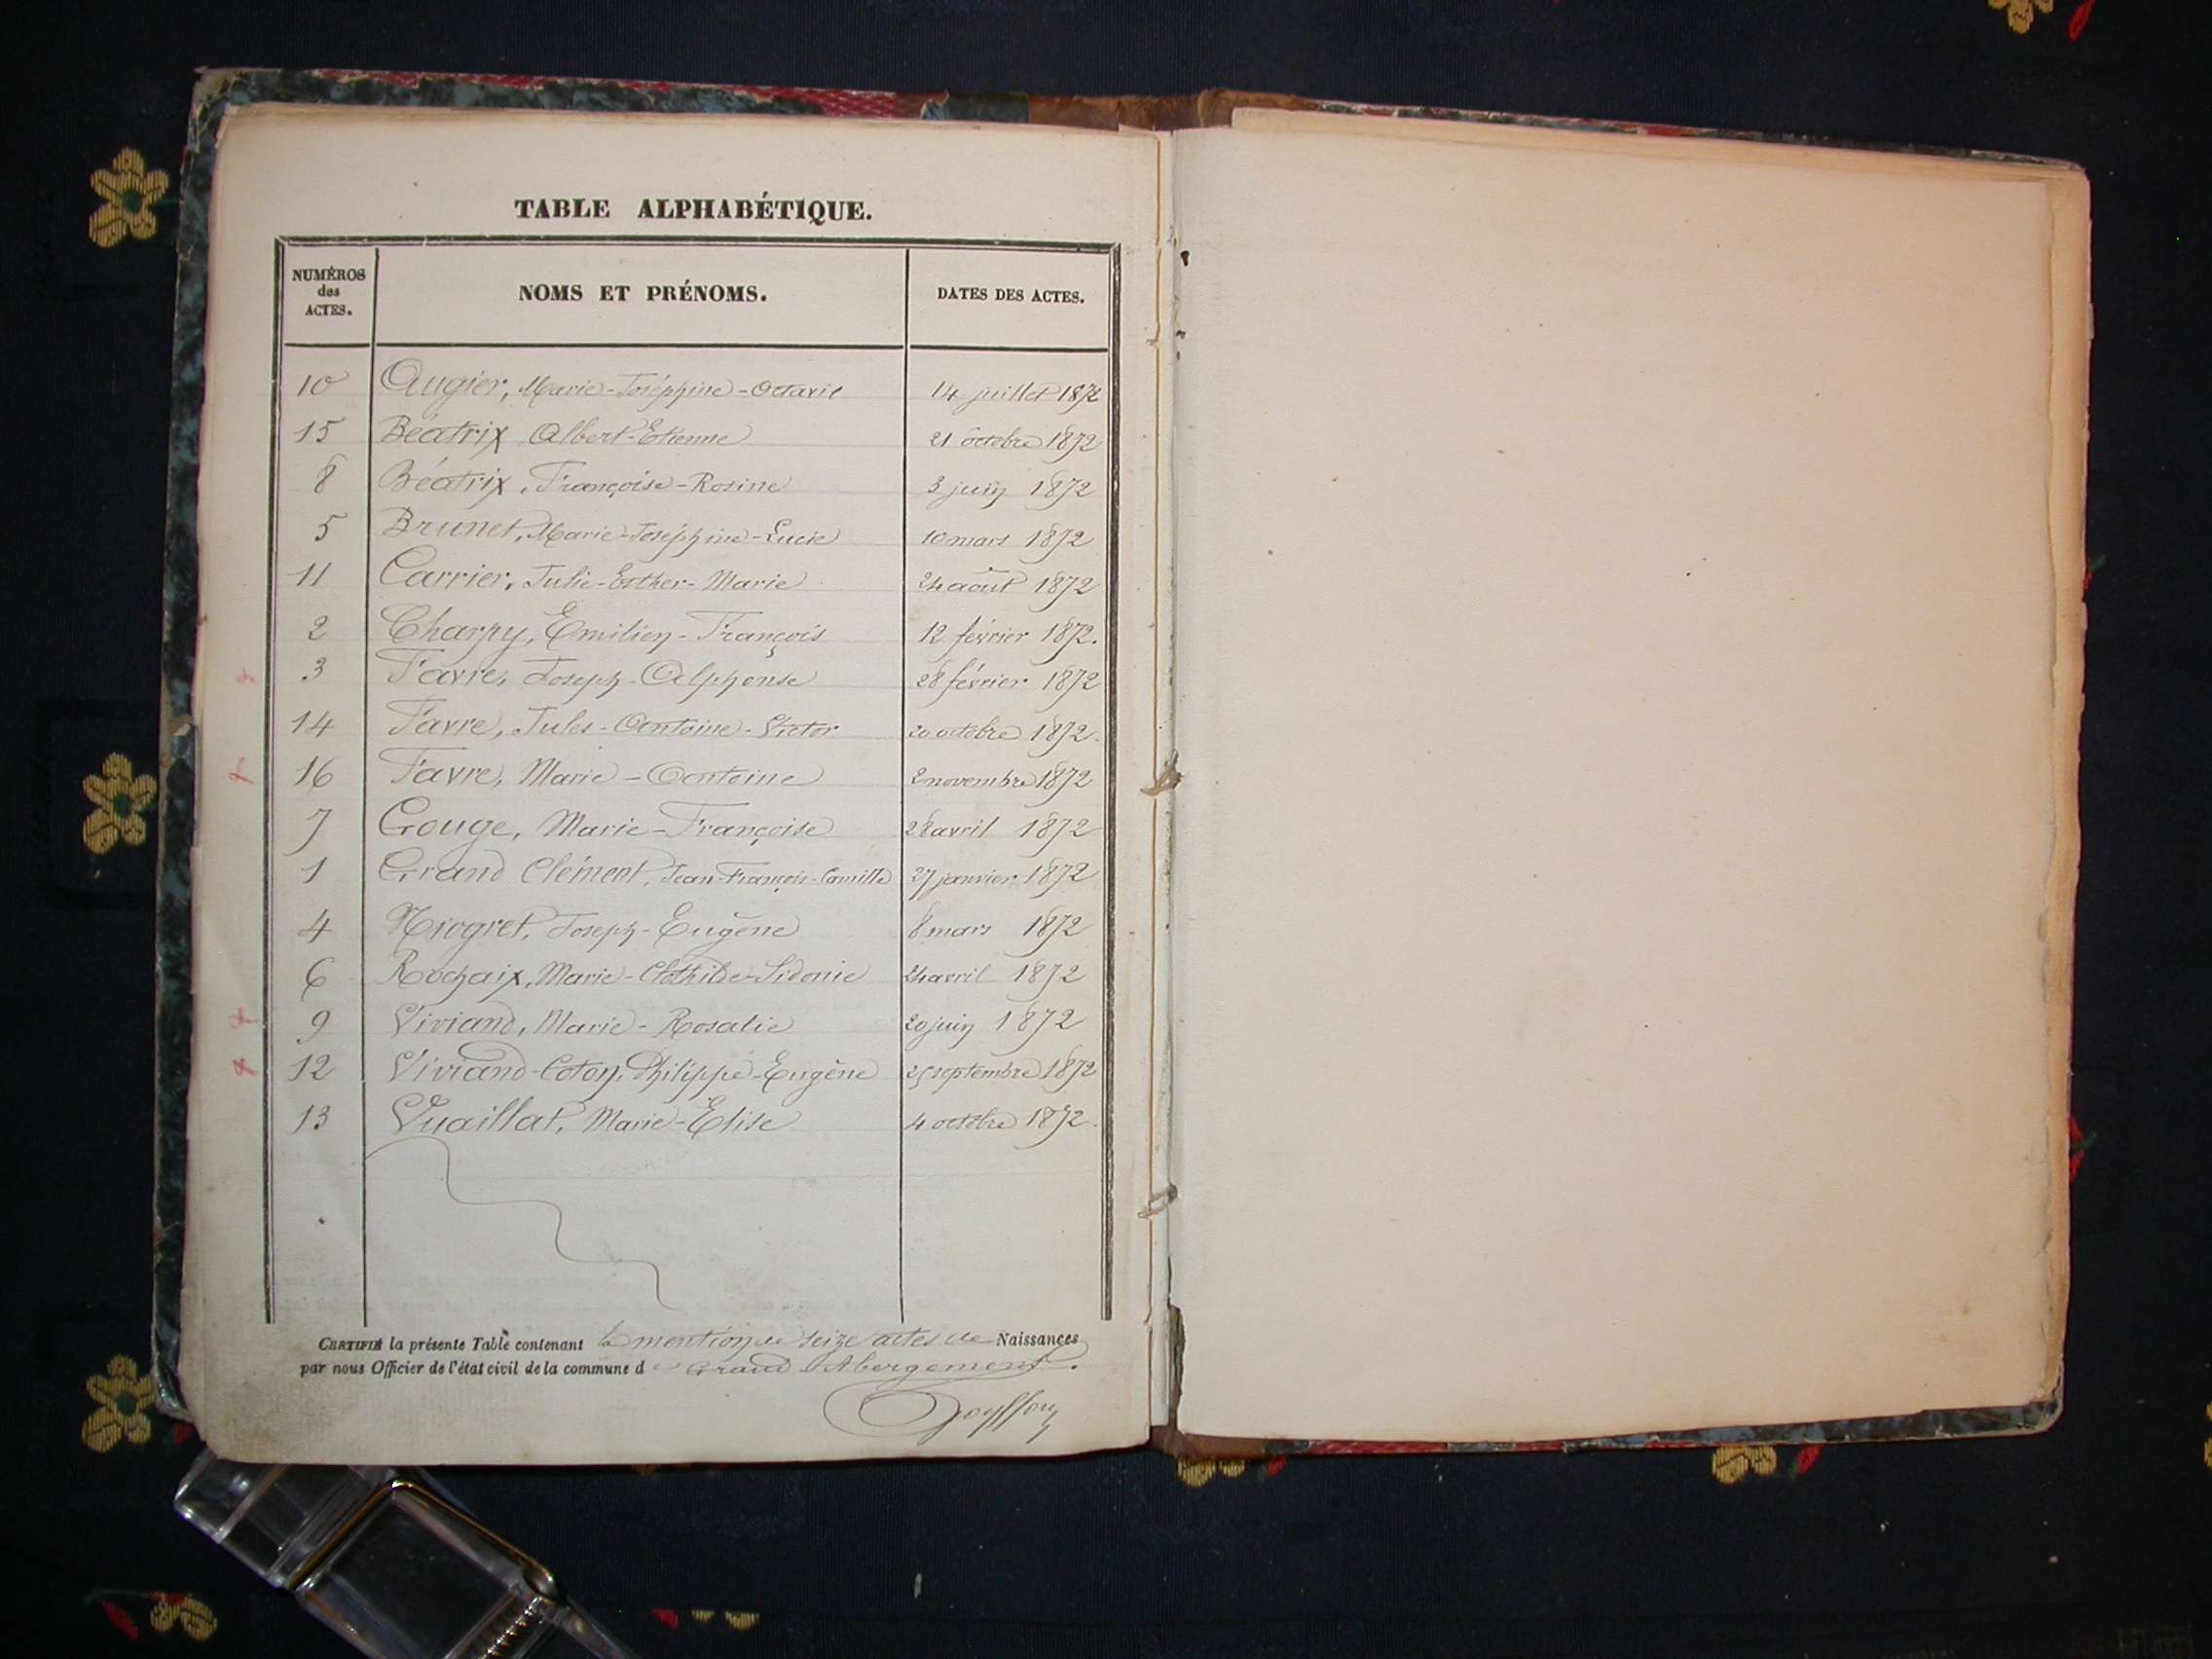 TABLE ALPHABÉTIQUE.
NUMÉROS des ACTES. NOMS ET PRÉNOMS. DATES DES ACTES.
10 Augier, Marie-Joséphine-Octavie 14 juillet 1872
15 Béatrix Albert-Etienne 21 octobre 1872
8 Béatrix, Françoise-Rosine 3 juin 1872
5 Brunet, Marie-Joséphine-Lucie 10 mars 1872
11 Carrier, Julie-Esther-Marie 24 août 1872
2 Charpy, Emilien-François 12 février 1872.
3 Favre, Joseph-Alphonse 28 février 1872
14 Favre, Jules-Antoine-Victor 20 octobre 1872.
16 Favre, Marie-Antoine 2 novembre 1872
7 Gouge, Marie-Françoise 28 avril 1872
1 Grand Clément, Jean-François-Camille 27 janvier 1872
4 Niogret, Joseph-Eugène 8 mars 1872
6 Rochaix, Marie-Clothilde-Sidonie 24 avril 1872
9 Viviand, Marie-Rosalie 20 juin 1872
12 Viviand-Coton, Philippe-Eugène 25 septembre 1872
13 Vuaillat, Marie-Elise 4 octobre 1872.
CERTIFIÉ la présente Table contenant la mention de seize actes de Naissances
par nous Officier de l'état civil de la commune de Grand Abergement.